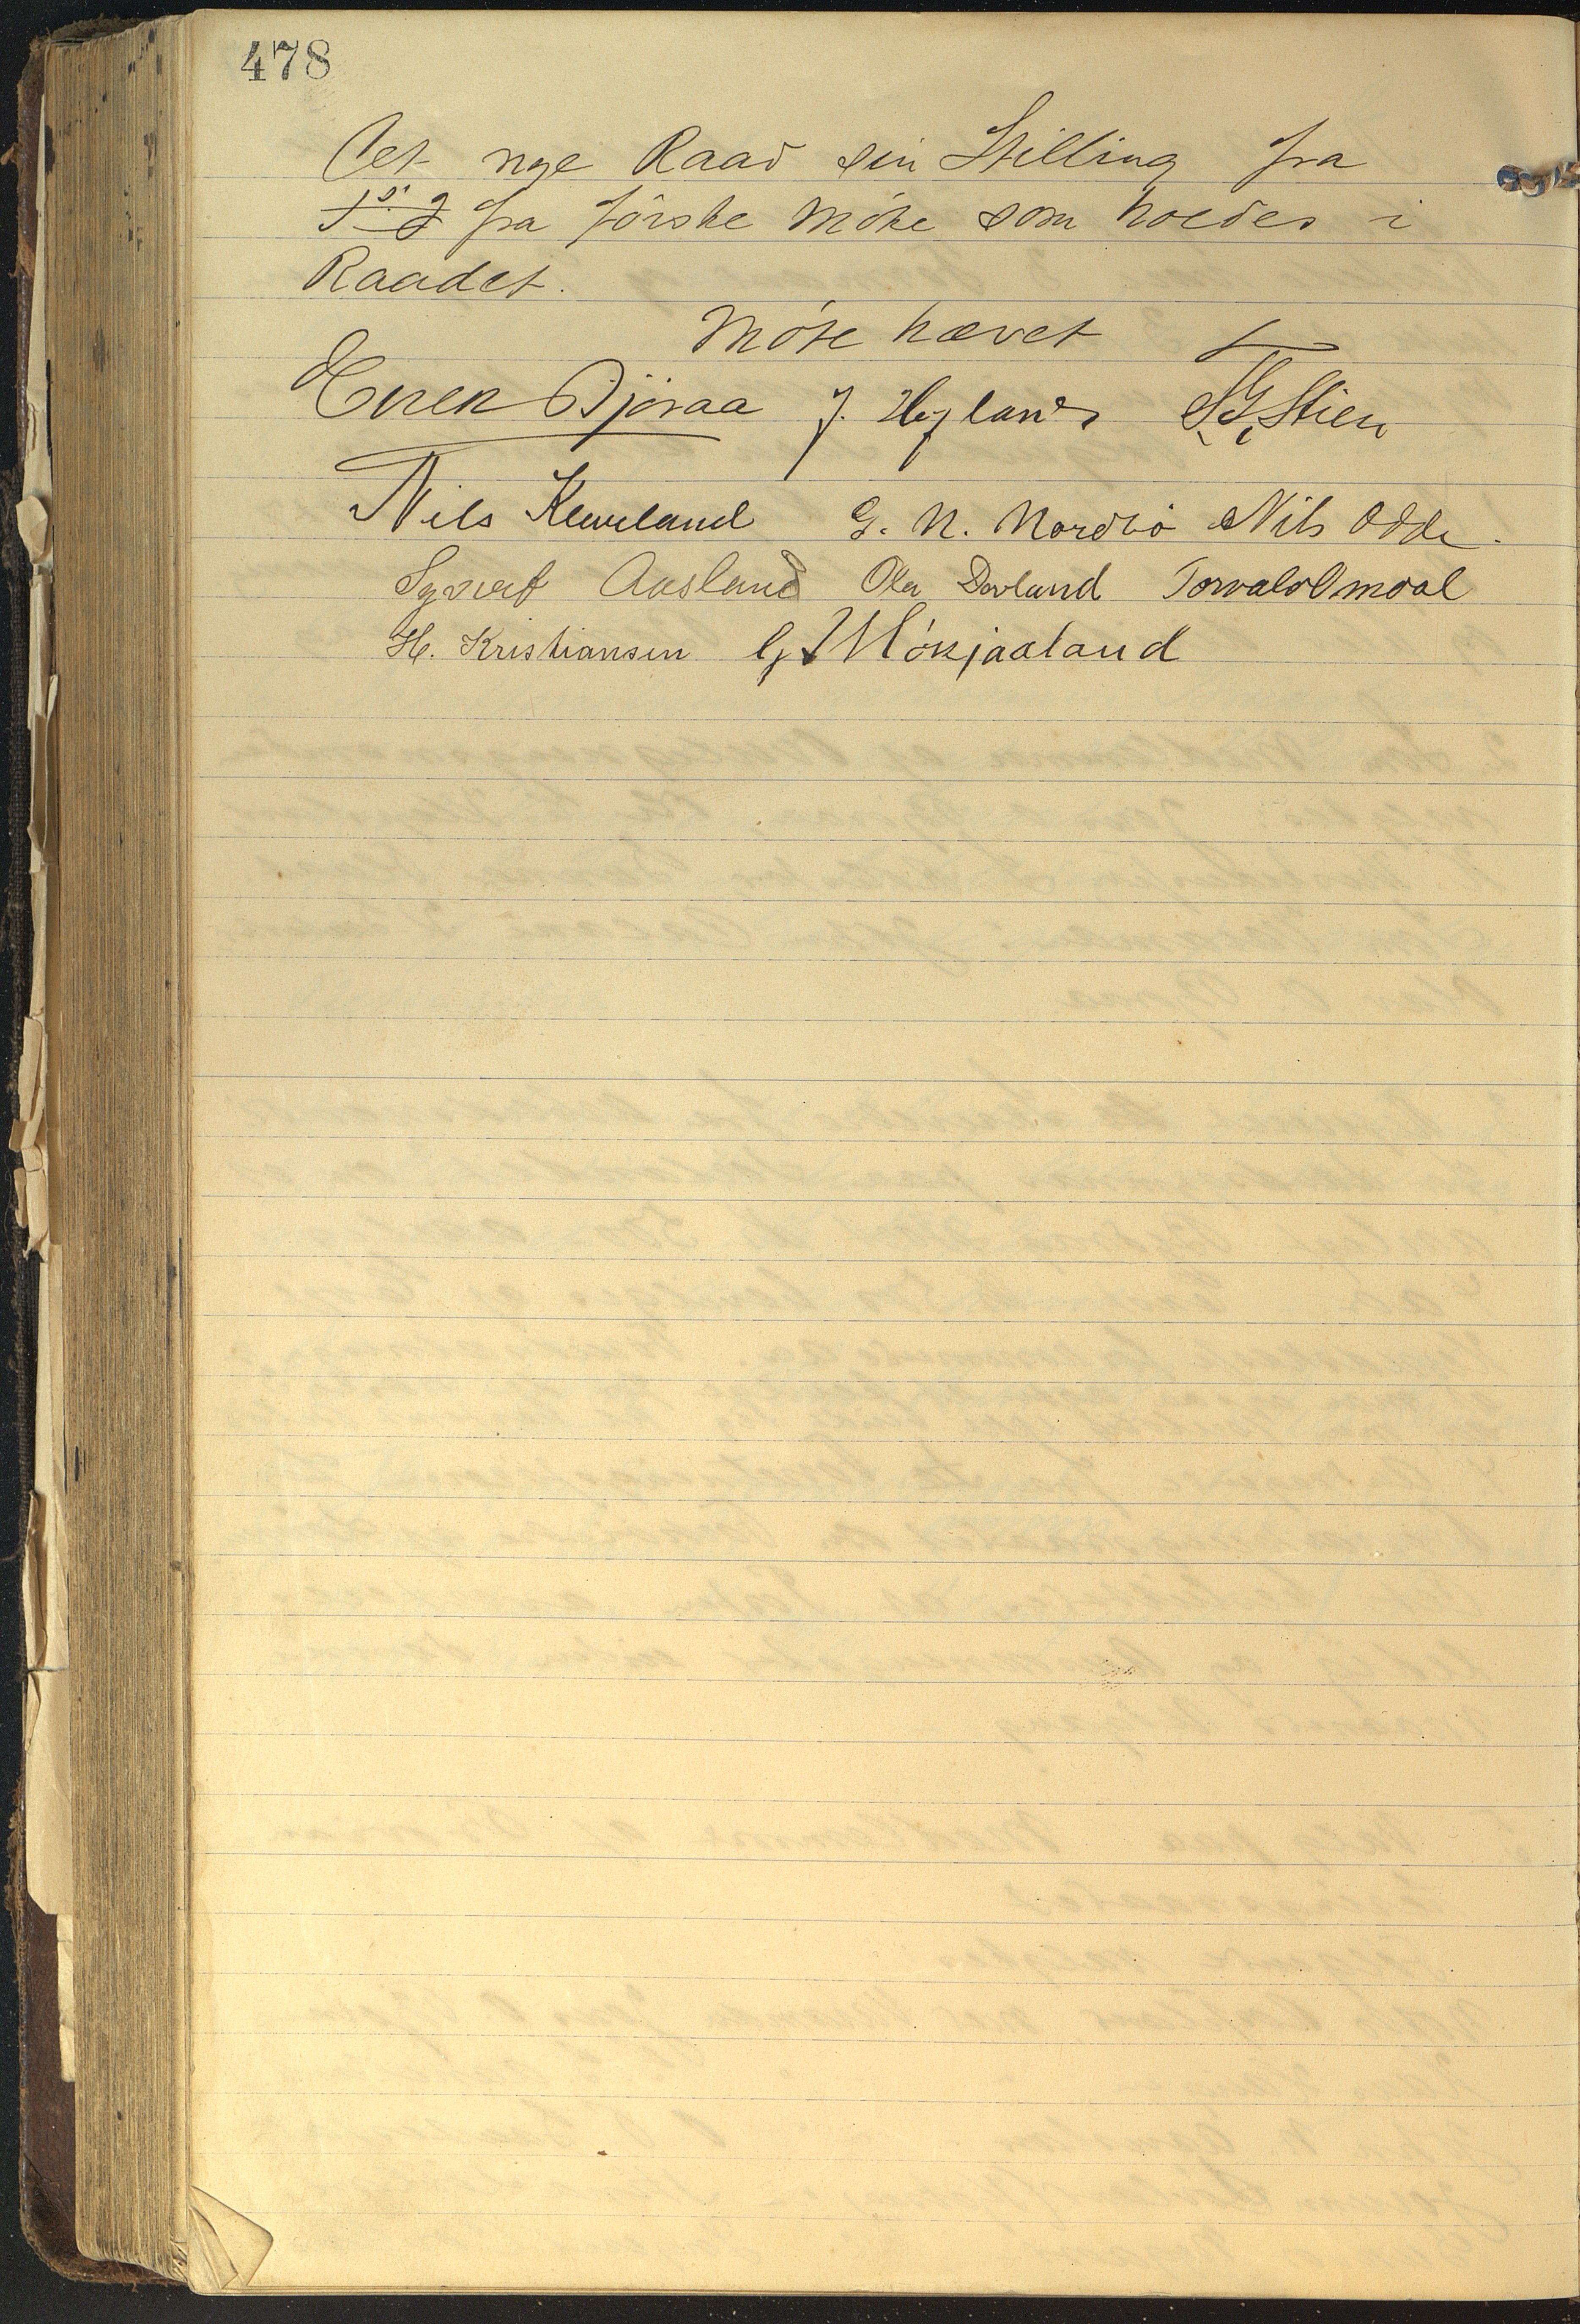 478
Det nye Raad sin Stilling fra
fra förste Möte som holdes i
Raadet.
Möte hævet
Enek Bjoraa J. Hegland S. G. Stien
Nils Kleveland G. N. Nordbö Nils Odde.
Syvert Aasland Ola Dovland Torvald Omdal
H. Kristiansen G. Mönjaaland